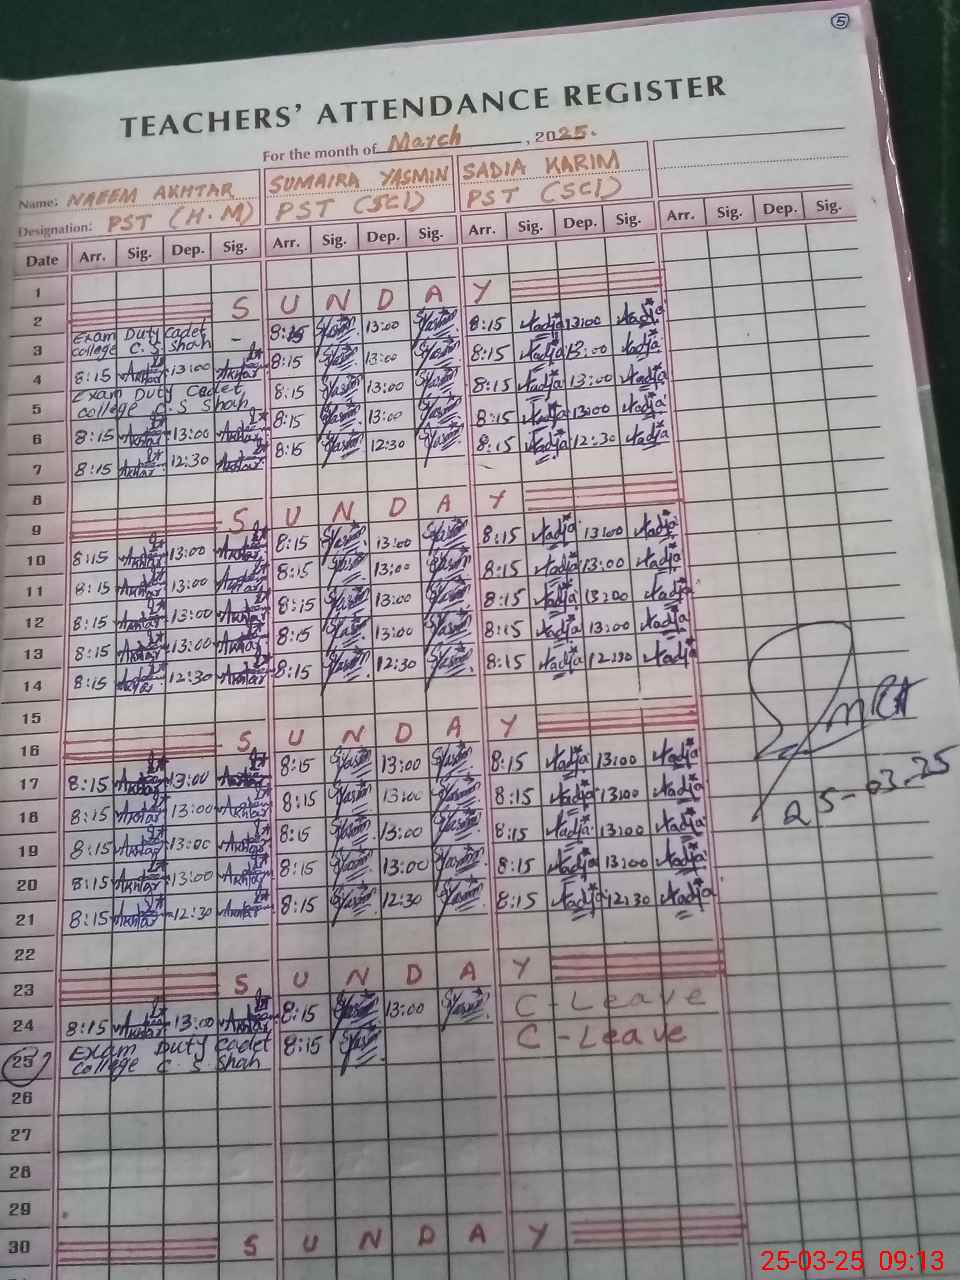 5
TEACHERS' ATTENDANCE REGISTER
For the month of March, 2025.
Name: NAEEM AKHTAR SUMAIRA YASMIN SADIA KARIM
Designation: PST (H.M) PST (SCI) PST (SCI)
Date Arr. Sig. Dep. Sig. Arr. Sig. Dep. Sig. Arr. Sig. Dep. Sig. Arr. Sig. Dep. Sig.
1
2 S U N D A Y
3 Exam Duty Cadet college C.S Shah - 8:15 13:00 8:15 13:00
4 8:15 Akhtar 13:00 Akhtar 8:15 13:00 8:15 13:00
5 Exam Duty Cadet college C.S Shah 8:15 13:00 8:15 13:00
6 8:15 Akhtar 13:00 Akhtar 8:15 13:00 8:15 13:00
7 8:15 Akhtar 12:30 Akhtar 8:15 12:30 8:15 12:30
8
9 S U N D A Y
10 8:15 Akhtar 13:00 Akhtar 8:15 13:00 8:15 13:00
11 8:15 Akhtar 13:00 Akhtar 8:15 13:00 8:15 13:00
12 8:15 Akhtar 13:00 Akhtar 8:15 13:00 8:15 13:00
13 8:15 Akhtar 13:00 Akhtar 8:15 13:00 8:15 13:00
14 8:15 Akhtar 12:30 Akhtar 8:15 12:30 8:15 12:30
15
16 S U N D A Y
17 8:15 Akhtar 13:00 Akhtar 8:15 13:00 8:15 13:00
18 8:15 Akhtar 13:00 Akhtar 8:15 13:00 8:15 13:00
19 8:15 Akhtar 13:00 Akhtar 8:15 13:00 8:15 13:00
20 8:15 Akhtar 13:00 Akhtar 8:15 13:00 8:15 13:00
21 8:15 Akhtar 12:30 Akhtar 8:15 12:30 8:15 12:30
22
23 S U N D A Y
24 8:15 Akhtar 13:00 Akhtar 8:15 13:00 C-Leave
25 Exam Duty Cadet college C.S Shah 8:15 C-Leave
26
27
28
29
30 S U N D A Y
25-03-25
25-03-25 09:13